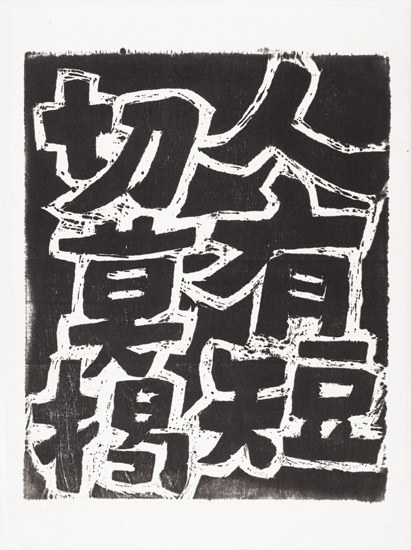 人有短
切莫揭